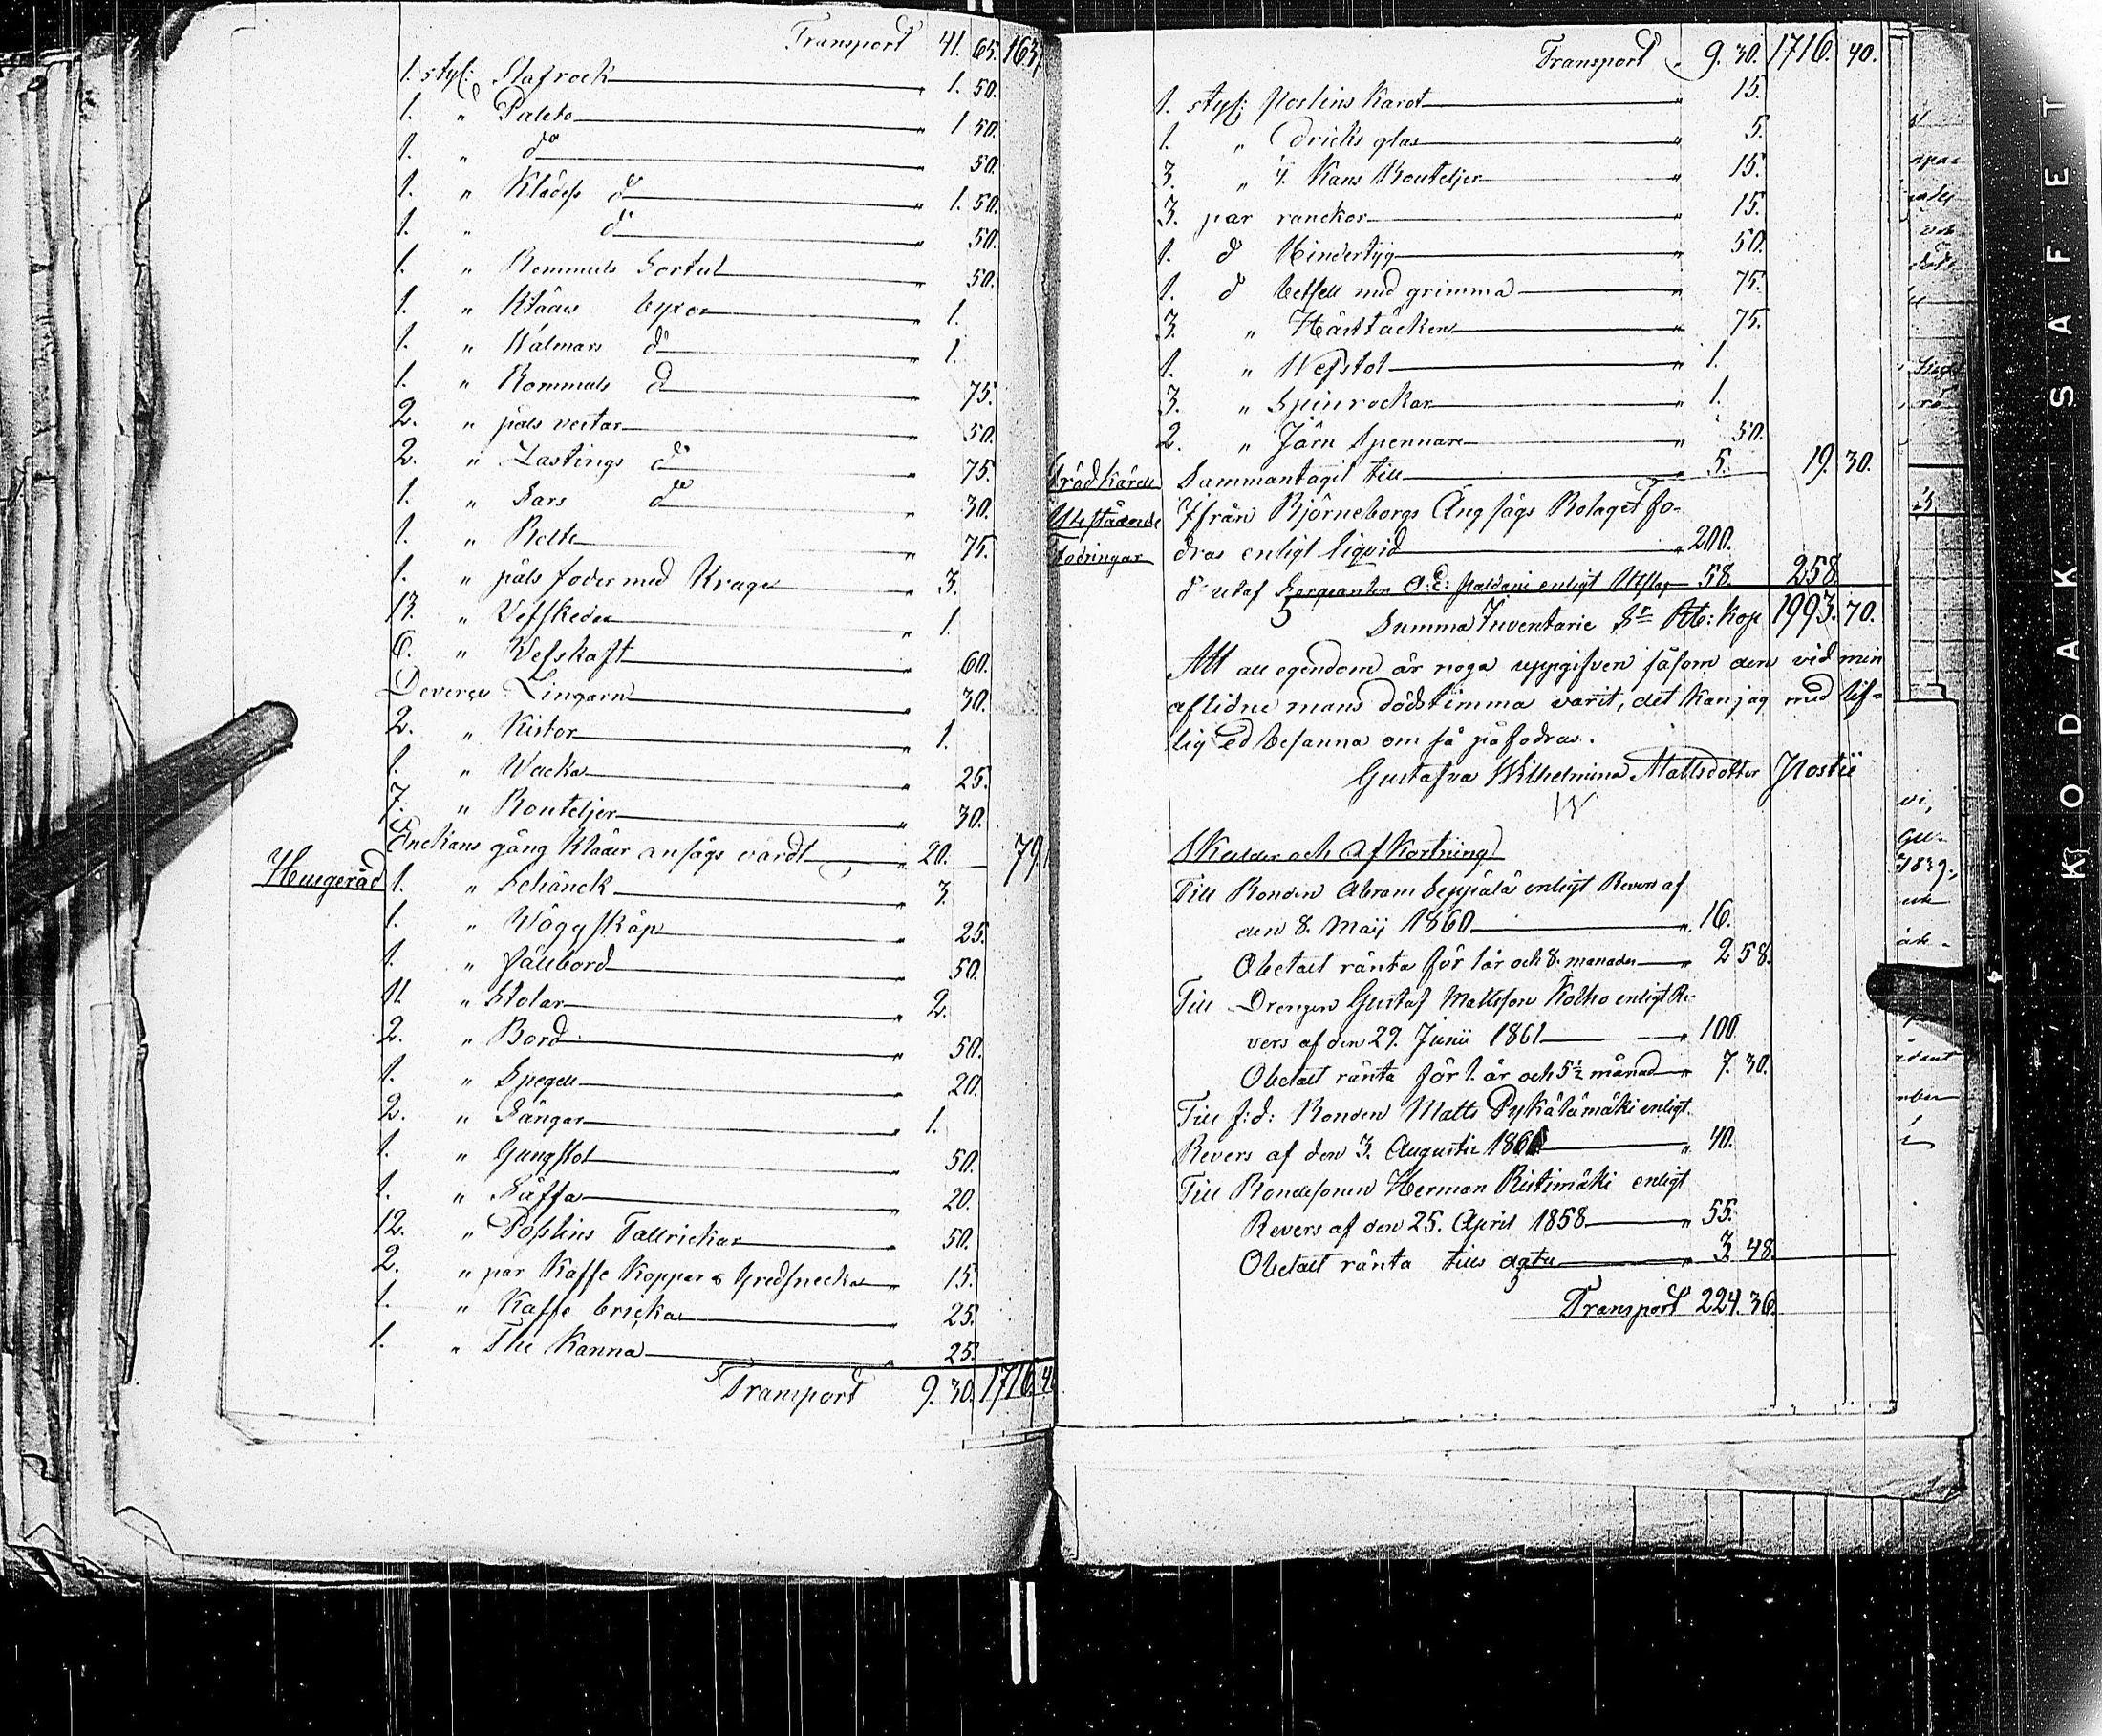 Transport 41. 65. 1637
1. styk: Slafrock 1. 50.
1. " Paleto " 1 50.
1. " do " 50.
1. " Klädes do " 1. 50.
1. " do " 50.
1. " Bommuls Sortut " 50.
1. " Klädes byxor " 1.
1. " Kalmars do " 1.
1. " Bommuls d 75.
2. " päls vestar " 50.
2. " Lastings do " 75.
1. " Sars do " 30.
1. " Belte " 75.
1. " päls foder med Krage " 3.
13. " Vefskedar " 1.
6. " Vefskaft " 60.
Deverse Lingarn " 30.
2. " Kistor " 1.
1. " Wacka " 25.
7. " Bouteljer " 30.
Enckans gång kläder ansågs värdt " 20. 79.
Husgeråd 1. " Schänck " 3.
1. " Wäggskåp " 25.
1. " fällbord " 50.
11. " Stolar " 2.
2. " Bord " 50.
1. " Spegell " 20.
2. " Sängar " 1.
1. " Gungstol " 50.
1. " Säffa " 20.
12. " Poslins Tallrickar " 50.
2. " par Kaffe Koppar o Gredsnecka " 15.
1. " Kaffe bricka " 25.
1. " The Kanna 25.
Transport 9. 30. 1716. 40
Transport " 9. 30. 1716. 40.
1. styk: poslins Karot " 15.
1. " dricks glas " 5.
3. " Kans Bouteljer " 15.
3. par ranckor " 15.
1. d Hindertyg " 50.
1. d betsell med grimma " 75.
3. " Hästtäcken " 75.
1. " Wefstol " 1.
3. " Spinrockar " 1.
2. " Järn Spennare " 50.
Träd kärell Sammantagit till " 5. 19. 30.
Utestående Ifrån Björneborgs Ång sågs Bolaget fo-
Fodringar dras enligt liqvid " 200.
d utaf Sergeanten enligt Utslag 58. 258.
Summa Inventarie Sr Rb: kop 1993. 70.
Att all egendom är noga uppgifven såsom den vid min
aflidne mans dödstimma varit, det kan jag med lif-
lig ed besanna om så påfodras.
Gustafva Wilhelmina Mattsdotter Hostii
Skulder och Afkortning
Till Bonden Abram Seppälä enligt Revers af
den 8. Maij 1860 " 16.
Obetalt ränta för 1 år och 8. manader " 2 58.
Till Drengen Gustaf Mattsson Kolho enligt Re-
vers af den 29. Junii 1861 " 100.
Obetalt ränta för 1. år och 5½ månad " 7. 30.
Till f: d: Bonden Matts Pykälämäki enligt
Revers af den 3. Augustii 1861 " 40.
Till Bondesonen Herman Ristimäki enligt
Revers af den 25. April 1858 " 55.
Obetalt ränta till dato " 3. 48
Transport 224. 36.
KODAK SAFET